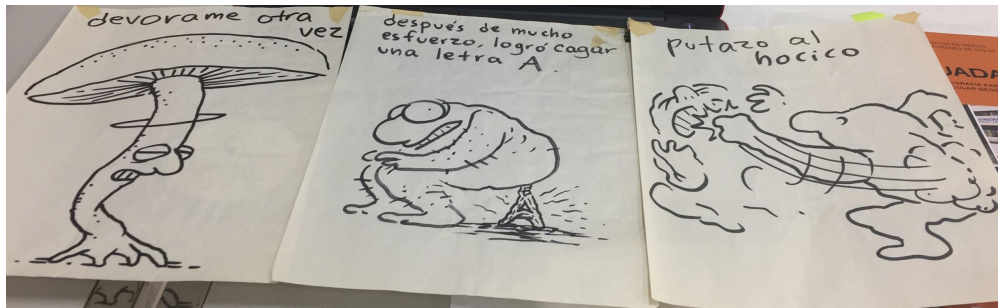 devorame otra
vez
después de mucho
esfuerzo, logró cagar
una letra A.
putazo al
hocico
JADA